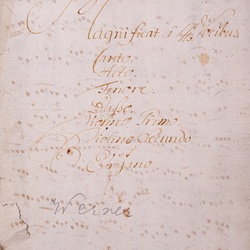 Magnificat à 4 Vocibus
Canto
Alto
Tenore
Basso
Violino Primo
Violino Secundo
Organo
Werner